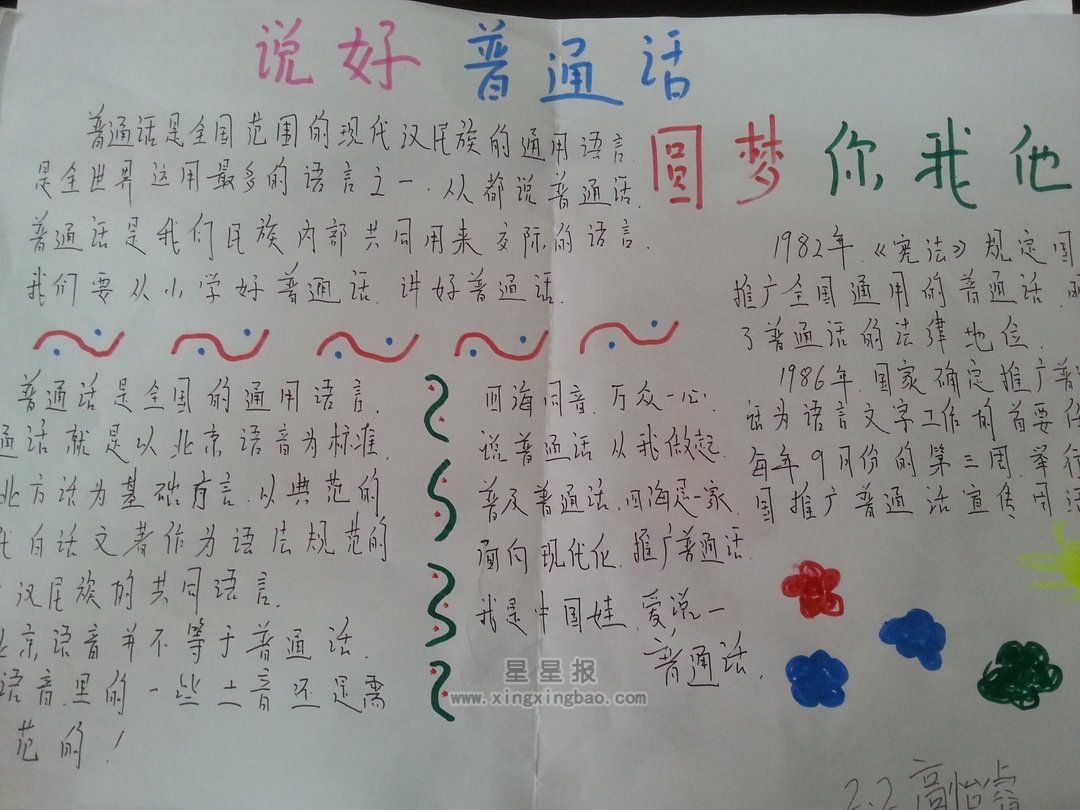 说好普通话
圆梦你我他
普通话是全国范围的现代汉民族的通用语言.
是全世界运用最多的语言之一.从都说普通话.
普通话是我们民族内部共同用来交际的语言.
我们要从小学好普通话.讲好普通话.
普通话是全国的通用语言.
通话就是以北京语音为标准.
北方话为基础方言.以典范的
代白话文著作为语法规范的
汉民族的共同语言.
北京语音并不等于普通话.
语音里的一些土音还是需
范的!
四海同音.万众一心.
说普通话从我做起.
普及普通话,四海是一家.
面向现代化.推广普通话.
我是中国娃.爱说一
普通话.
1982年.《宪法》规定国
推广全国通用的普通话.
了普通话的法律地位.
1986年.国家确定推广普
话为语言文字工作的首要任
每年9月份的第三周.举行
国推广普通话宣传周活
2.2高怡
星星报
www.xingxingbao.com